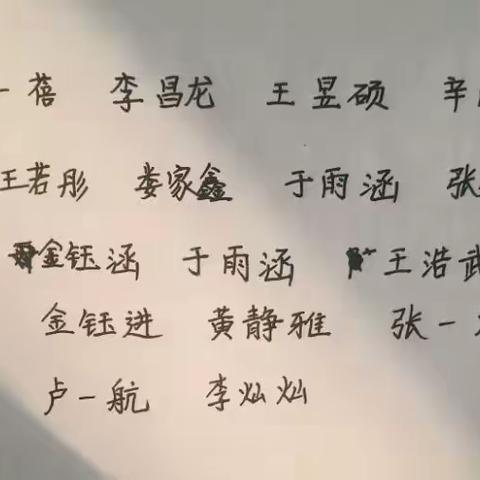 一蓓 李昌龙 王昱硕 辛
王若彤 娄家鑫 于雨涵 张
金钰涵 于雨涵 王浩武
金钰进 黄静雅 张一
卢一航 李灿灿